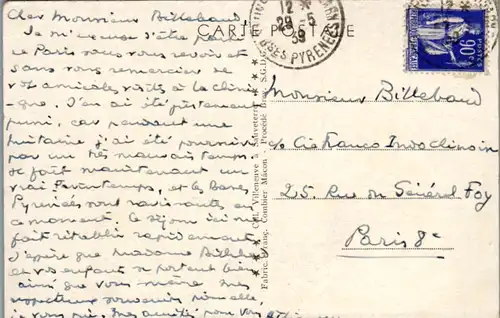 Cher Monsieur Billebaud
Je m'en veux d'être parti
de Paris sans vous revoir et
sans vous remercier de
vos amicales visites à la clini
-que. J'en ai été justement
puni, car pendant une
huitaine j'ai été poursuivi
par un très mauvais temps.
Il fait maintenant un
vrai Printemps, et les Basses
Pyrénées sont ravissantes en
ce moment. Le séjour ici me
fait rétablir rapidement
J'espère que Madame Billebaud
et vos enfants se portent bien
ainsi que vous même. Mes
respectueux souvenirs
je vous prie. Mes amitiés pour vous
CARTE POSTALE
12 *
29 -5
39
BSES PYRENEES
90
Coll. Villeneuve à Sauveterre
Fabric. Franç. Combier Mâcon Procédé Brev. S.G.D.G.
Monsieur Billebaud
c/o Cie Franco Indochinoise
25, Rue du Général Foy
Paris 8e